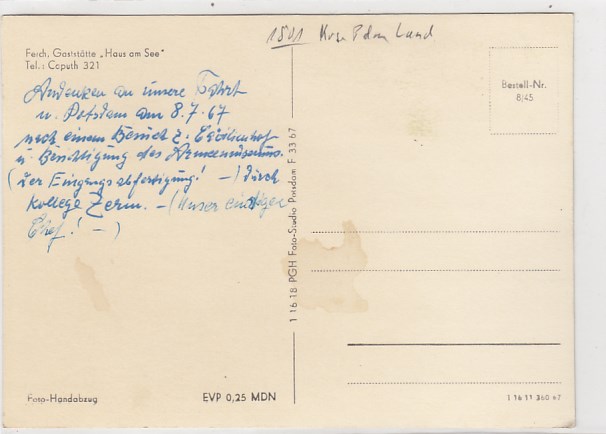 1501 Kose Pdm Land
Ferch, Gaststätte „Haus am See"
Tel.: Caputh 321
Bestell-Nr.
8/45
Andenken an unsere Fahrt
n. Potsdam am 8.7.67
nach einem Besuch z. Cecilienhof
u. Besichtigung des Armeemuseums.
(der Eingangsabfertigung! —) durch
Kollege Zerm. — (Unser einstiger
Chef! —)
1 16 18 PGH Foto-Studio Potsdam F 33 67
Foto-Handabzug
EVP 0,25 MDN
1 16 11 360 67